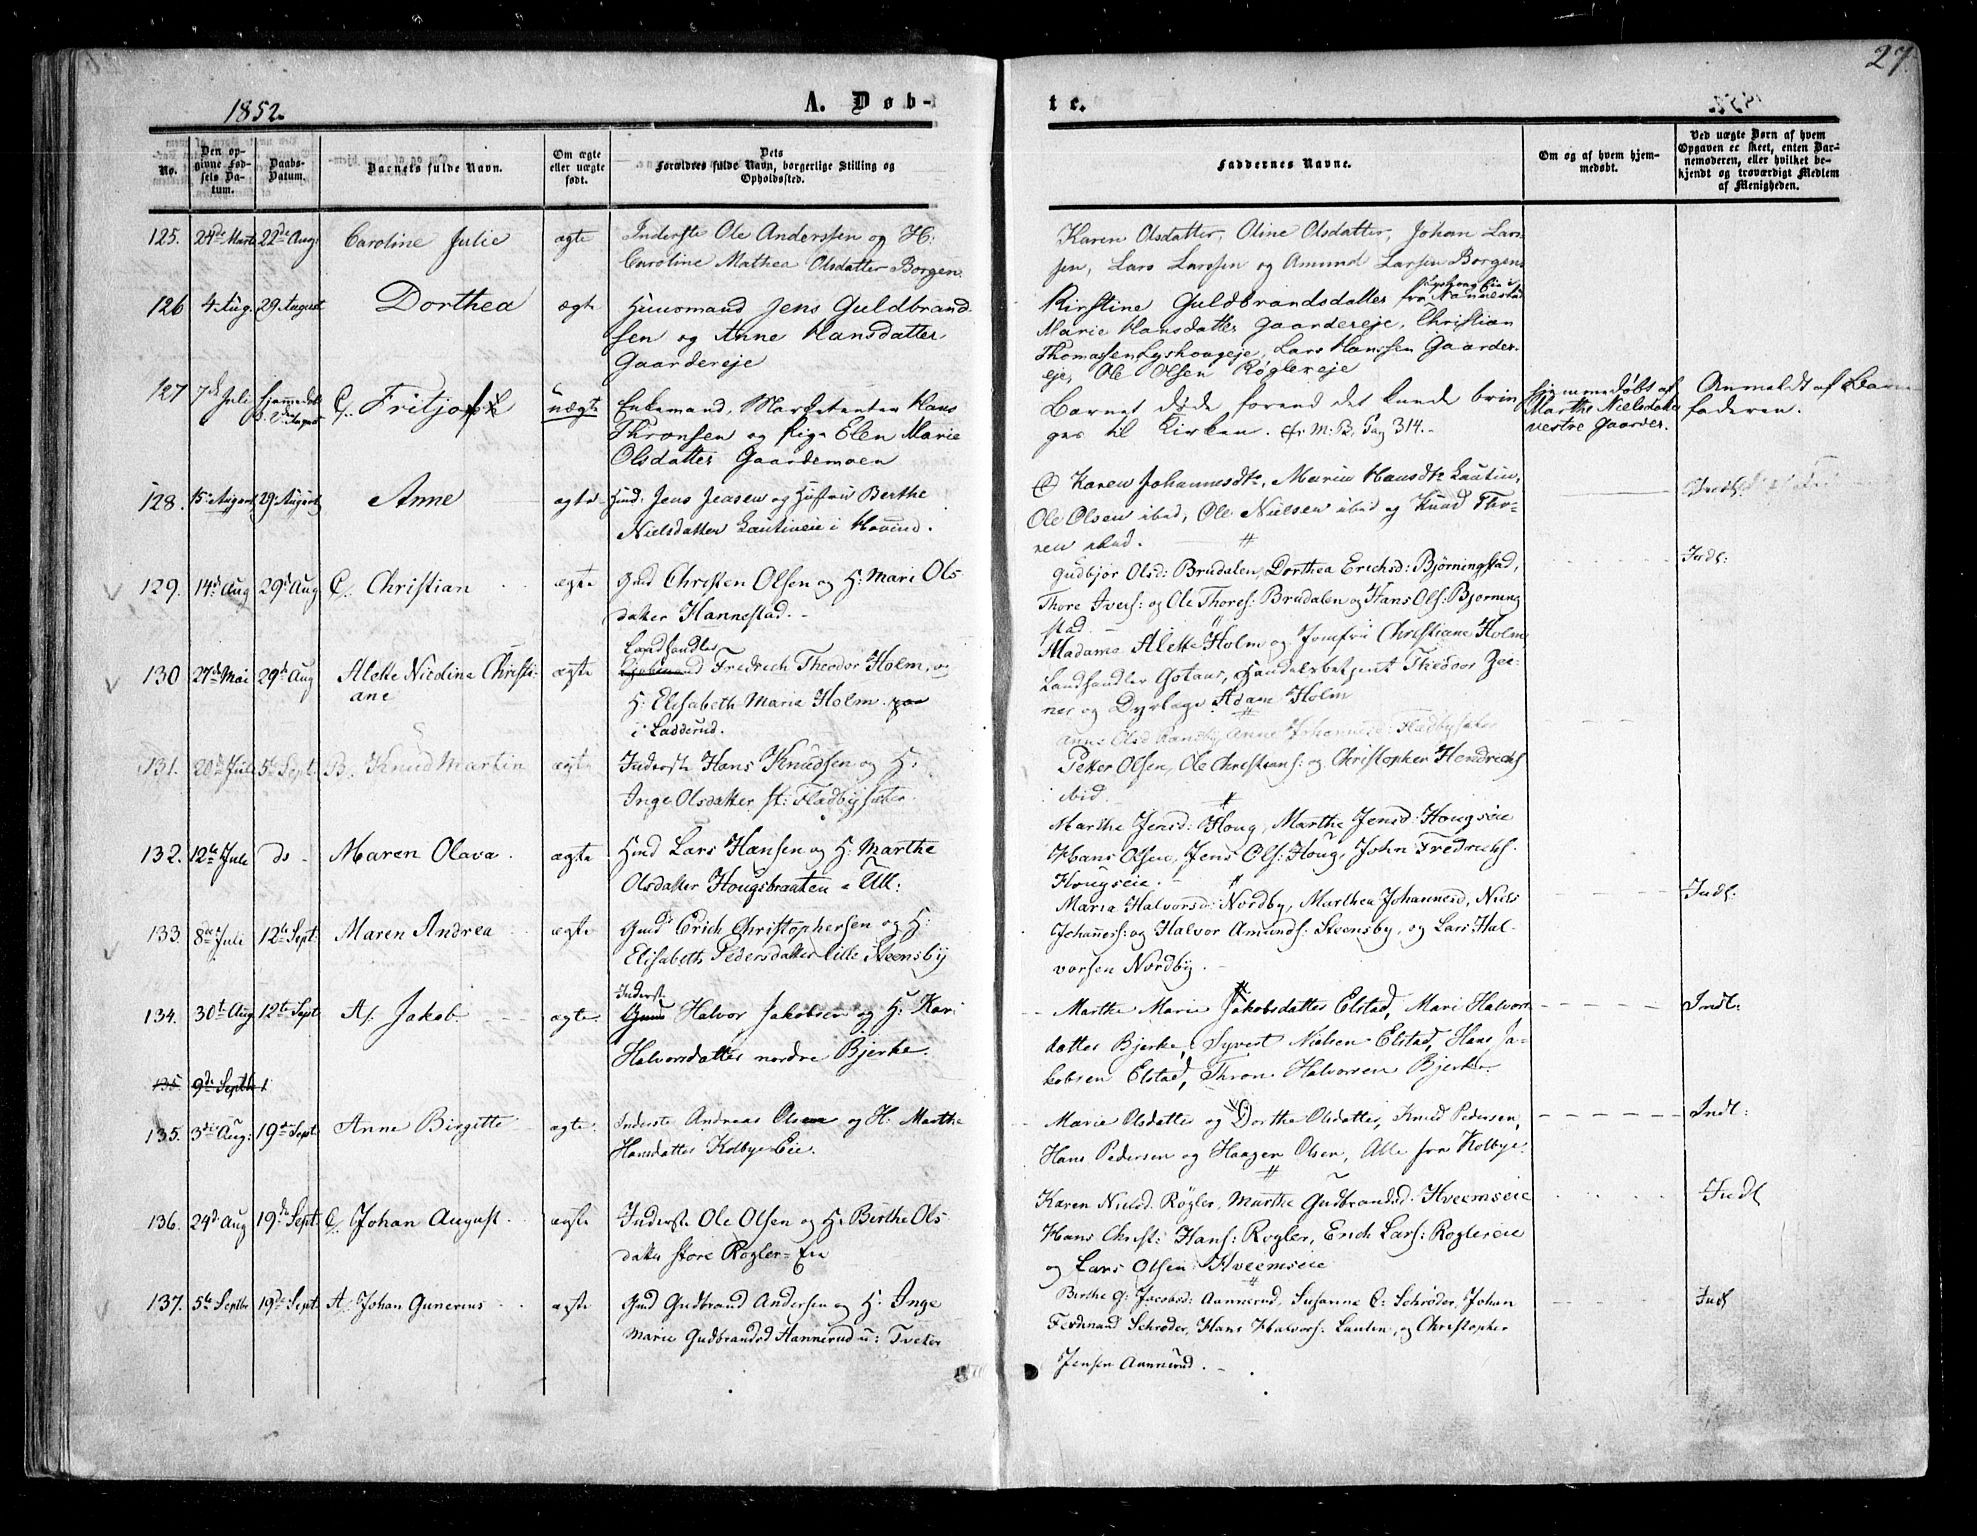 27
1852.
A. Døb-
te.
No.
Den op-
givne Fød-
sels Da-
tum.
Daabs-
Datum.
Barnets fulde Navn.
Om ægte
eller uægte
født.
Dets
Forældres fulde Navn, borgerlige Stilling og
Opholdssted.
Faddernes Navne.
Om og af hvem hjem-
medøbt.
Ved uægte Børn af hvem
Opgaven er skeet, enten Bar-
nemoderen, eller hvilket be-
kjendt og troværdigt Medlem
af Menigheden.
125. 24de Marts 22de Aug: Caroline Julie ægte Inderste Ole Anderssen og H:
Caroline Mathea Olsdatter Borgen
Karen Olsdatter, Oline Olsdatter, Johan Lars-
sen, Lars Larssen og Amund Larsen Borgen
126 4 Aug. 29 August Dorthea ægte Huusmand Jens Guldbrand
sen og Anne Hansdatter
Gaardereje
Kirstine Guldbrandsdatter fra Nannestad
Marie Hansdatter Gaardereje, Christian
Thomassen Lyshougeje, Lars Hanssen Gaarder-
eje, Ole Olsen Røglereje
127 7de Juli C. Fritjof uægte Enkemand, Marketenter Hans
Thronsen og Pige Elen Marie
Olsdatter Gaardemoen
Barnet døde forend det kunde brin
ges til Kirken. cfr M: B. Pag 314.
Hjemmedøbt af
Marthe Nielsdatter
vestre Gaarder.
Anmeldt af Barne
faderen.
128. 15 August 29 August Anne ægte Hmd: Jens Jensen og Hustru Berthe
Nielsdatter Lautineie i Hovind.
Karen Johannesdtr, Maria Hansdtr Lautin,
Ole Olsen ibid, Ole Nielsen ibid og Knud Tho-
ren ibid.
Indl:
129. 14d Aug 29d Aug C. Christian ægte Gmd Christen Olsen og H: Mari Ols
datter Hannestad.
Gudbjør Olsd: Brudalen, Dorthea Erichsd: Bjørningstad,
Thore Ivers: og Ole Thores: Brudalen og Hans Ols: Bjørning
stad
Indl:
130 27de Mai 29d Aug Alette Nicoline Christi-
ane ægte Landhandler
Fredrich Theodor Holm, og
H: Elisabeth Maria Holm
i Ladderud.
Madame Alette Holm og Jomfru Christiane Holm
Landhandler Gotaas, Handelsbetjent Theodor Zei-
ner og Dyrlæge Adam Holm
131. 20d Juli 5te Sept. B. Knud Martin ægte Inderste Hans Knudsen og H:
Inge Olsdatter st: Fladbysæter.
Anne Olsd Randby, Anne Johannesd: Fladbysæter
Petter Olsen, Ole Christians: og Christopher Hendrichs
ibid.
132. 12te Juli do Maren Olava. ægte Hmd Lars Hansen og H: Marthe
Olsdatter Hougsbraaten - Ull:
Marthe Jensd: Houg, Marthe Jensd: Hougseie
Hans Olsen, Jens Ols: Houg, John Fredrichs:
Hougseie.
133. 8de Juli 12te Sept: Maren Andrea ægte Gmd Erich Christophersen og H:
Elisabeth Pedersdatter lille Steensby
Maria Halvorsd: Nordby, Marthea Johannesd, Niels
Johaness: og Halvor Amunds: Steensby, og Lars Hal-
vorsen Nordby.
Indl:
134. 30t Aug 12te Sept A. Jakob. ægte. Inderst:
Halvor Jakobsen og H: Kari
Halvorsdatter nordre Bjerke.
Marthe Marie Jakobsdatter Elstad, Mari Halvors
datter Bjerke, Syvert Nielsen Elstad, Hans Ja-
kobsen Elstad, Thron Halvorsen Bjerke.
Indl:
135 9de Septb
135. 3die Aug: 19de Sept Anne Birgitte ægte. Inderste Andreas Olsen og H: Marthe
Hansdatter Kolbye Eie.
Marie Olsdatter og Dorthe Olsdatter, Knud Pedersen,
Hans Pedersen og Haagen Olsen, Alle fra Kolbye.
Indl:
136. 24d Aug 19de Sept. C. Johan August ægte Inderste Ole Olsen og H: Birthe Ols
datter store Røgler-Eie
Karen Nielsd: Røgler, Marthe Gudbrandsd: Hveemseie
Hans Christ: Hans: Røgler, Erich Lars: Røglereie
og Lars Olsen Hveemseie
Indl
137. 5te Septbr 19de Sept. A. Johan Gunerius ægte Gmd Gudbrand Andersen og H: Inge
Marie Gudbrandsd Hannerud u: Tveter
Birthe G: Jacobsd: Aannerud, Susanne C: Schrøder, Johan
Ferdinand Schrøder, Hans Halvors: Lauten, og Christopher
Jensen Aannerud.
Indl